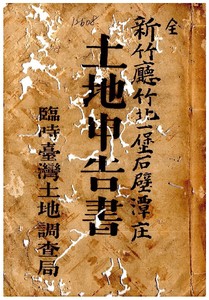 12608
全
新竹廳竹北一堡石壁潭庄
土地申告書
臨時臺灣土地調査局